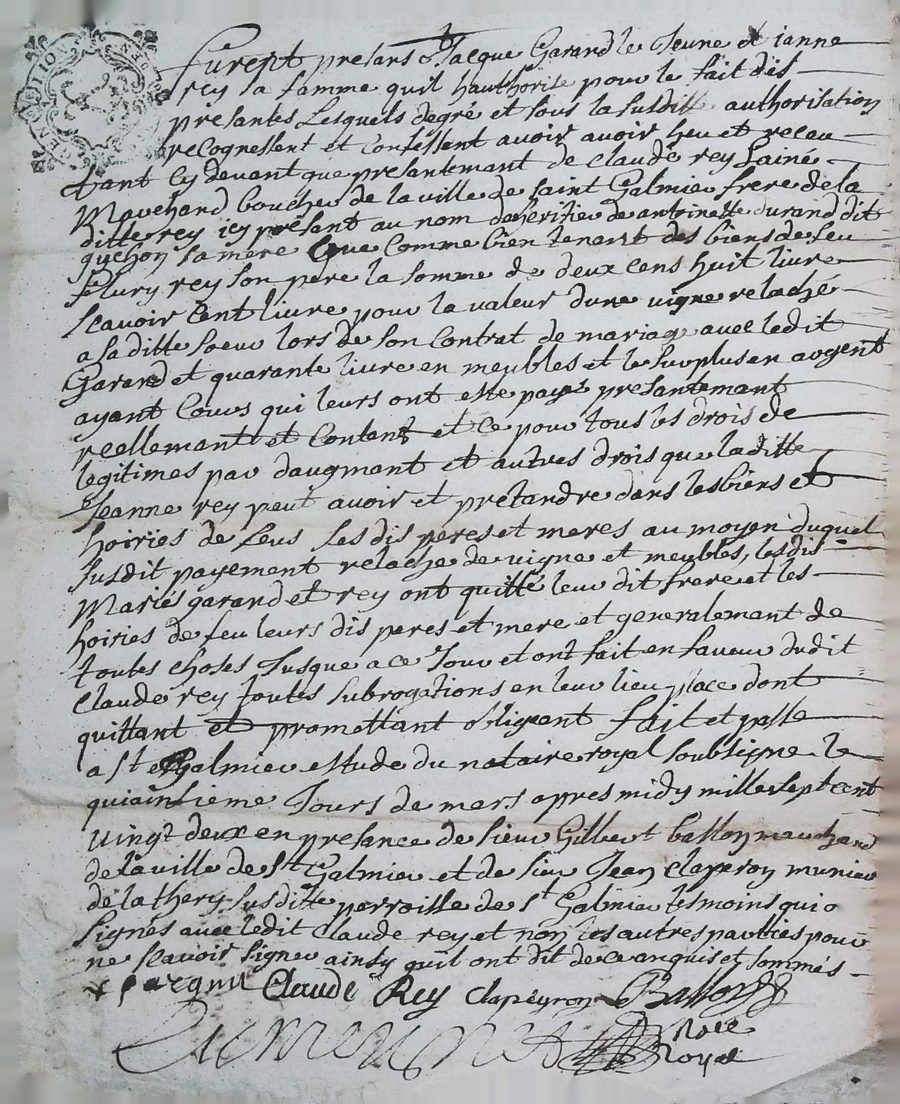 GENERATION
furent presans Jacque Garand le Jeune et ianne
rey sa famme quil hauthorise pour le fait des
presantes Lesquels degré et sous la susditte authorisation
recognessent et confessent avoir avoir heu et receu
tant cy devant que presantemant de Claude rey Lainé
Marchand boucher de la ville de saint Galmier frere de la
ditte rey icy présant au nom dheritier de antoinette durand dit
guchon sa mere que comme bien tenant des biens de feu
fleury rey son pere la somme de deux cens huit livre
scavoir cent livre pour la valeur dune vigne relaché
a sa ditte soeur lors de son contrat de mariage avec ledit
Garand et quarante livre en meubles et le surplus en argent
ayant cours qui leurs ont esté payé presantemant
reellemant et content et ce pour tous les drois de
legitimes par daugmant et autres drois que la ditte
Jeanne rey peut avoir et pretandre dans les biens et
hoiries de leus les dis peres et meres au moyen duquel
susdit payement relache de vigne et meubles, les dis
Mariés garand et rey ont quitté leur dit frere et les
hoiries de feu leurs dis peres et mere et generalement de
toutes choses Jusque a ce Jour et ont fait en faveur dudit
Claude rey toutes subrogations en leur lieu place dont
quittant et promettant obligeant fait et passé
a St Galmier estude du nataire royal soubsigne le
quiainsieme Jours de mars apres midy mille sept cent
vingt deux en presance de sieur Gilbert balloy marchand
de la ville de St Galmier et de sieur Jean claperon munier
de la thery susditte parroisse de St Galmier tesmoins qui o
signés avec ledit Claude rey et non les autres partties pour
ne scavoir signer ainsy quil ont dit de ce anquis et sommés
Claude Rey Clapeyron Balloy
Nore
Royal